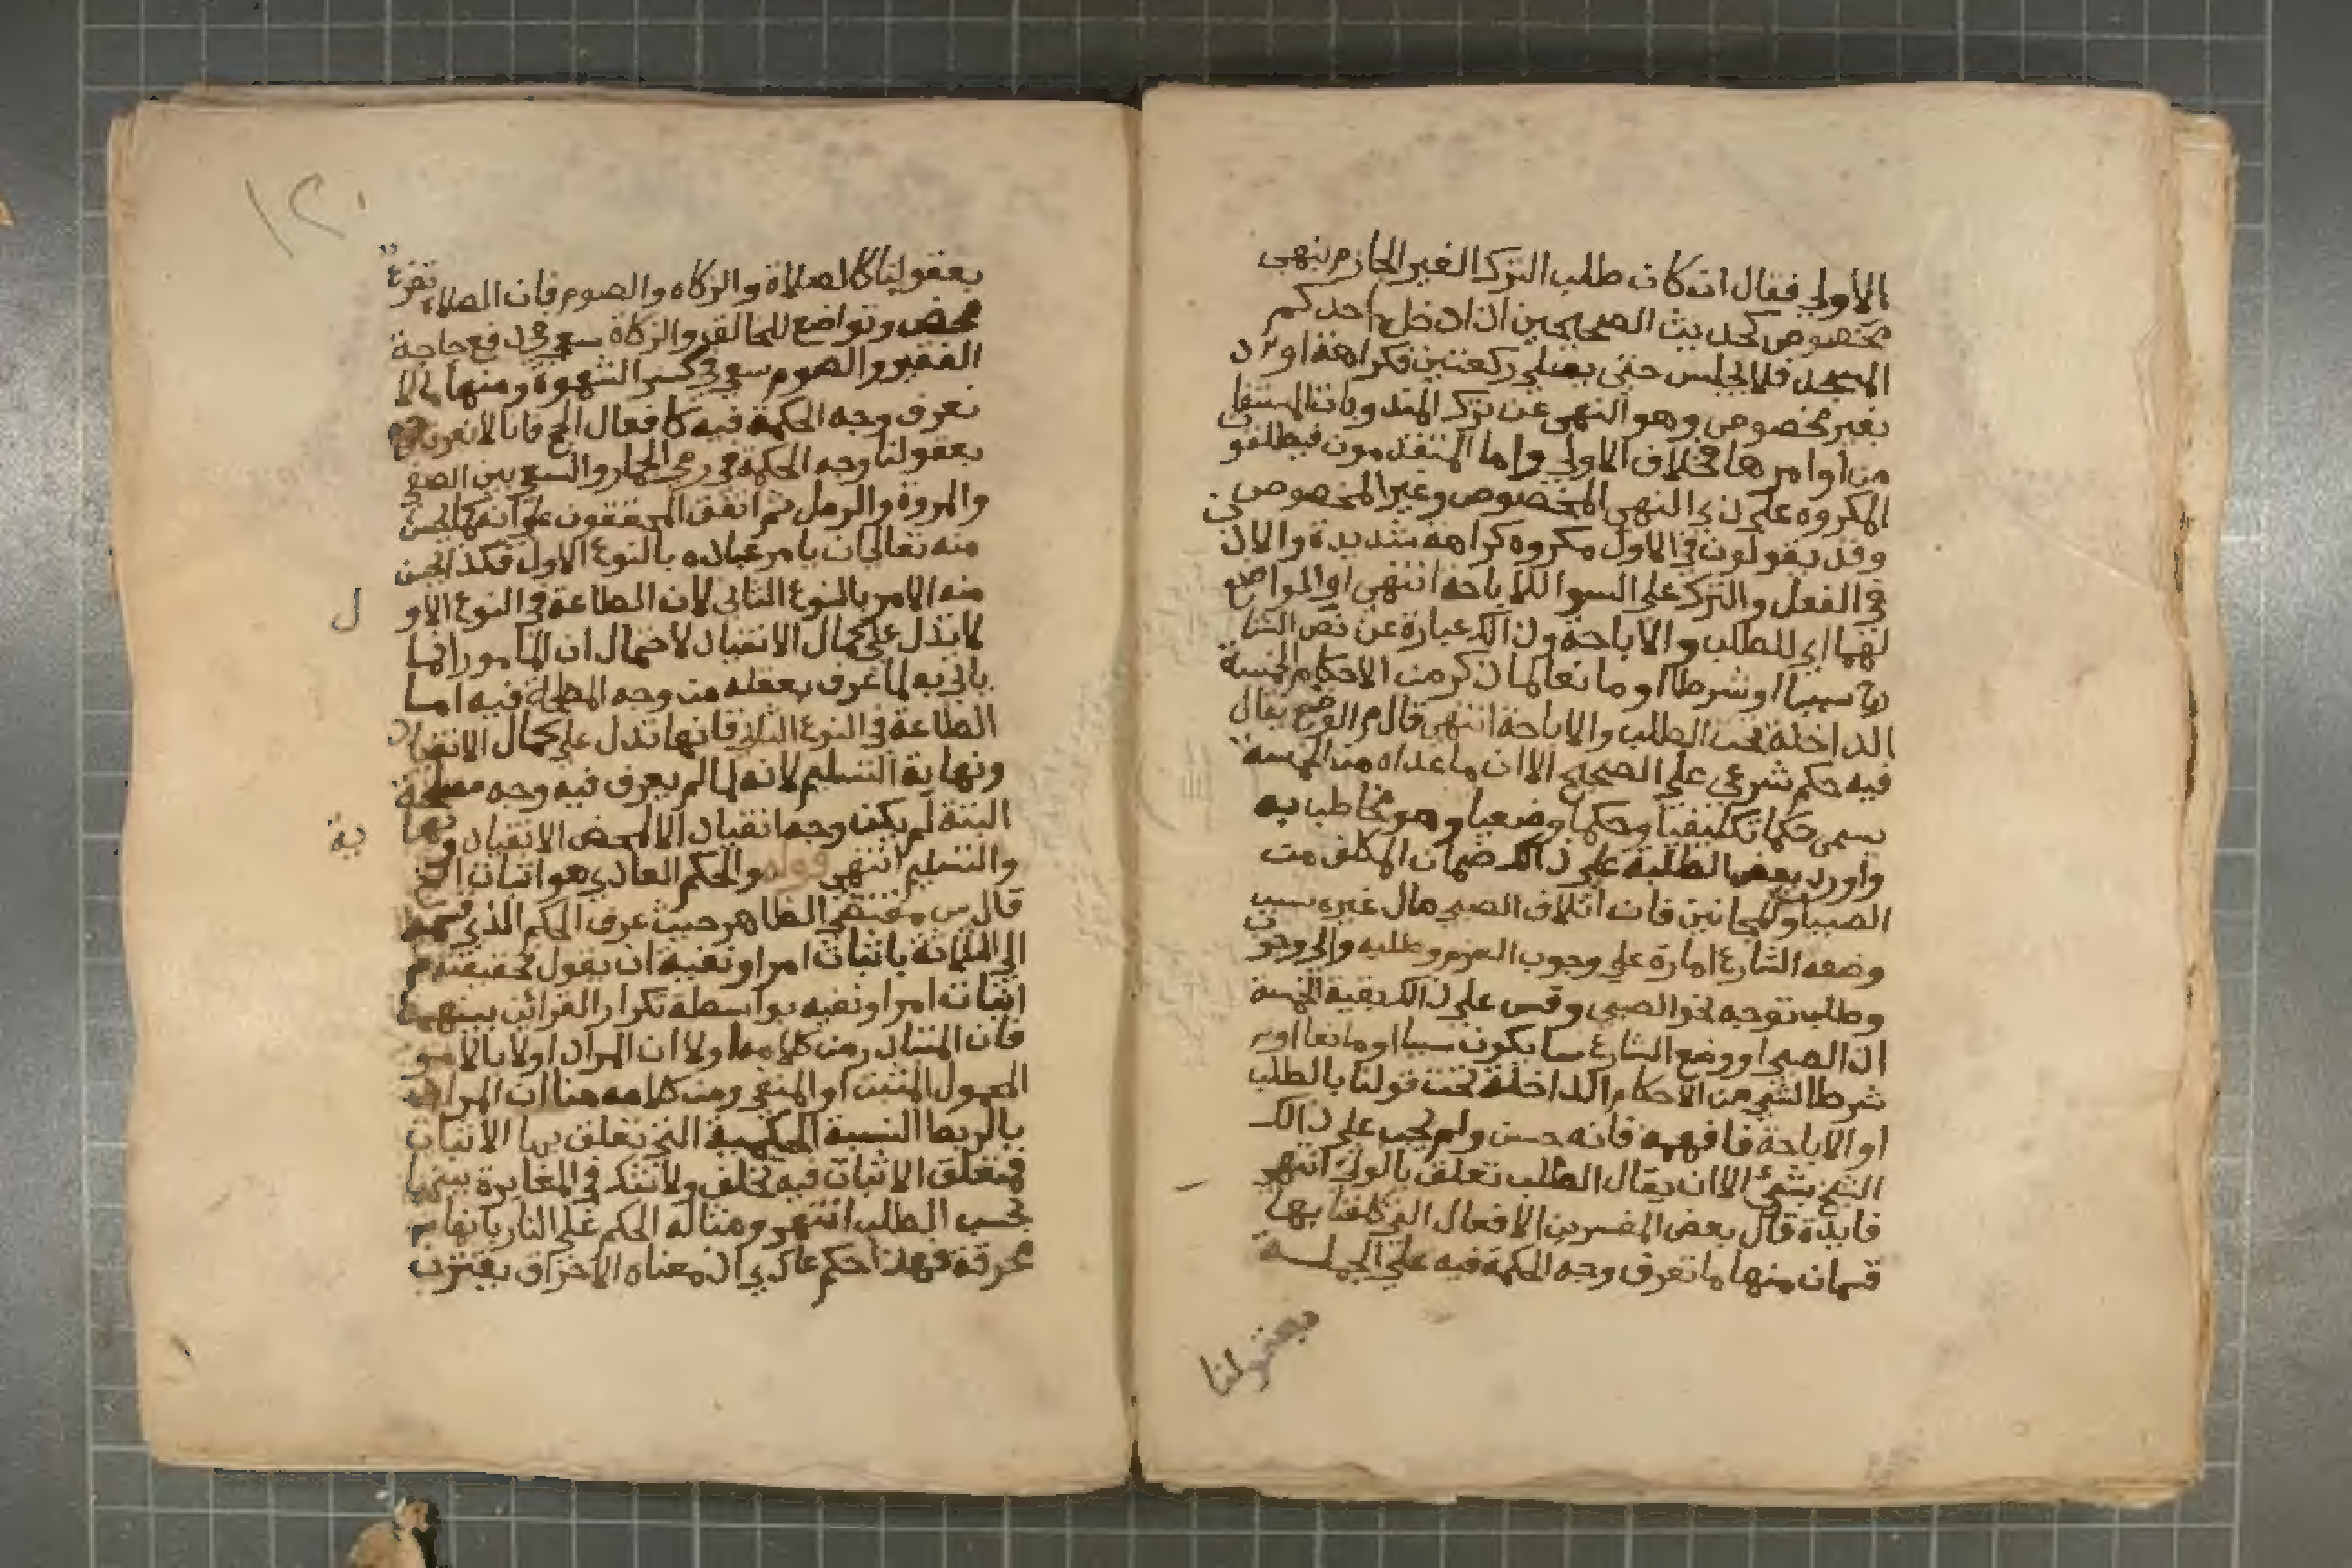 الاولى فقال ان كان طلب الترك الغير الجازم بنهى
مخصوص كحديث الصحيحين اذا دخل احدكم
المسجد فلا يجلس حتى يصلى ركعتين فكراهة او
بغير مخصوص وهو النهى عن ترك المندوبات المستفا
من اوامرها فخلاف الاولى واما المتقدمون فيطلقو
المكروه على ذى النهى المخصوص وغير المخصوص
وقد يقولون فى الاول مكروه كراهة شديدة والاذن
فى الفعل والترك على السوا للاباحة انتهى او الواضع
لهما اى للطلب والاباحة وذالك عبارة عن نصّ الشا
رع سببا او شرطا او مانعا لما ذكر من الاحكام الخمسة
الداخلة تحت الطلب والاباحة انتهى قال م الوضع يقال
فيه حكم شرعى على الصحيح الا ان ما عداه من الخمسة
يسمى حكما تكليفيا وحكما وضعيا وهو مخاطب به
واورد بعض الطلبة على ذالك ضمان المكلف من
الصبيا والمجانين فان اتلاف الصبى مال غيره سبب
وضعه الشارع امارة على وجوب الغرم وطلبه والوجو
وطلب توجه نحو الصبى وقس على ذالك بقية الخمسة
اذ الصبى او وضع الشارع سا يكون سببا او مانعا او
شرطا لشئ من الاحكام الداخلة تحت قولنا بالطلب
او الاباحة فافهمه فانه حسن ولم يجب على ذالك
الشيخ بشئ الا ان يقال الطلب تعلق بالولى انتهى
فايدة قال بعض المفسرين الافعال التى كلفنا بها
قسمان منها ما نعرف وجه الحكمة فيه على الجملة
بعقولنا
١٢٠
بعقولنا كالصلاة والزكاه والصوم فان الصلاة تضرع
محض وتواضع للخالق والزكاة سعى فى دفع حاجة
الفقير والصوم سعى فى كسر الشهوة ومنها ما لا
نعرف وجه الحكمة فيه كافعال الحج فانا لا نعرف
بعقولنا وجه الحكمة فى رمى الجمار والسعى بين الصفى
والمروة والرمل ثم اتفق المحققون على انه كما يحسن
منه تعالى ان يامر عباده بالنوع الاول فكذا يحسن
منه الامر بالنوع الثانى لان الطاعة فى النوع الاو
ل
لا تدل على كمال الانقياد لاحتمال ان المامور انما
ياتى به لما عرف بعقله من وجه المصلحة فيه اما
الطاعة فى النوع الثانى فانها تدل على كمال الانقياد
ونهاية التسليم لانه لما لم يعرف فيه وجه مصلحة
البتة لم يكن وجه انقياد الا لمحض الانقياد ونها
ية
والتسليم انتهى قوله والحكم العادى هو اثبات الخ
قال س مقتضى الظاهر حيث عرف الحكم الذى قسمه
الى الثلاثة باثبات امر او نفيه ان يقول حقيقته
اثبات امر او نفيه بواسطة تكرار القرائن بينهما
فان المتبادر من كلامه اولا ان المراد اولا بالامو
المحمول المثبت او المنفى ومن كلامه هنا ان المراد
بالربط النسبة الحكمية التى تعلق بها الاثبات
فمتعلق الاثبات فيه تخلف ولا تشك فى المغايرة بينهما
بحسب الطلب انتهى ومثاله الحكم على النار بانها
محرقة فهذا حكم عادى اذ معناه الاحتراق يقترن